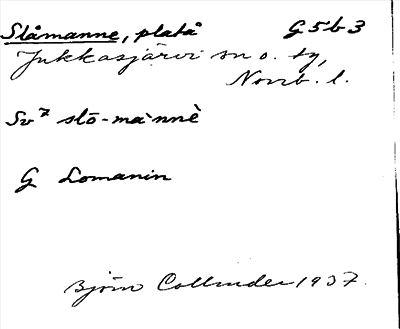 Slåmanne, platå G5b3
Jukkasjärvi sn o. tg,
Norrb. l.
Sv⁷ slō-mànnè
G Lomanin
Björn Collinder 1937.